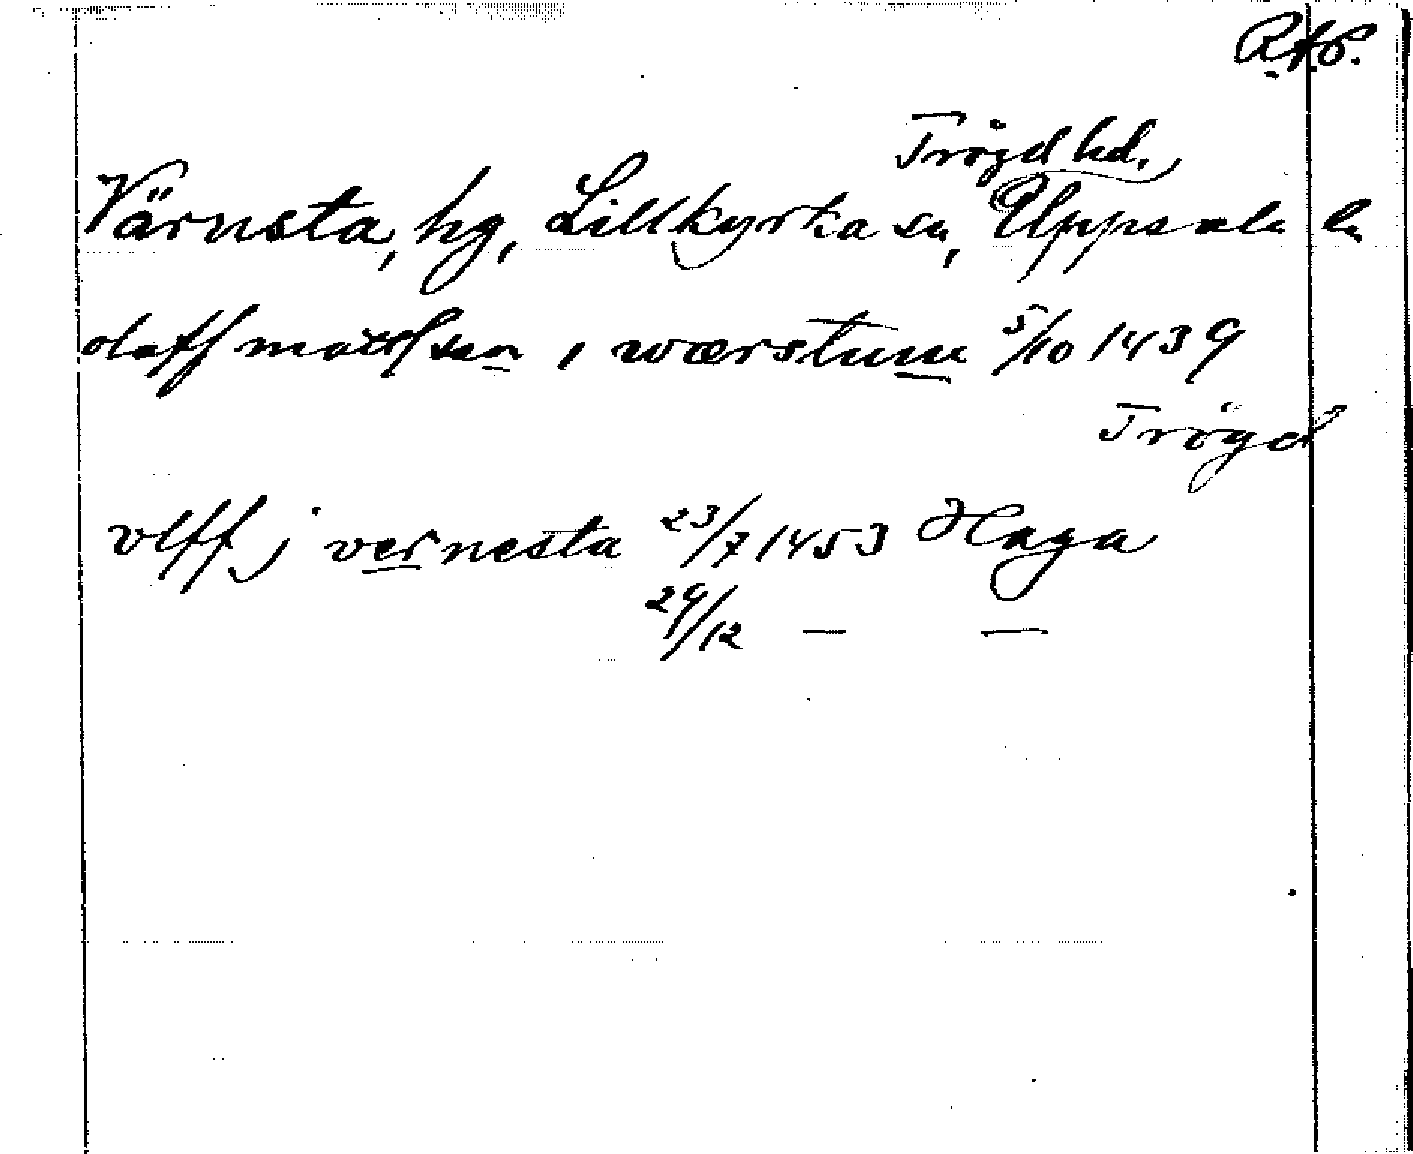 R.A.P.
Trögd hd.,
Värnsta, hg, Lillkyrka sn, Uppsala ln
olaff mattisson i wærstum 5/10 1439
Trögd
vlff j vernesta 23/7 1453 Haga
29/12 — —